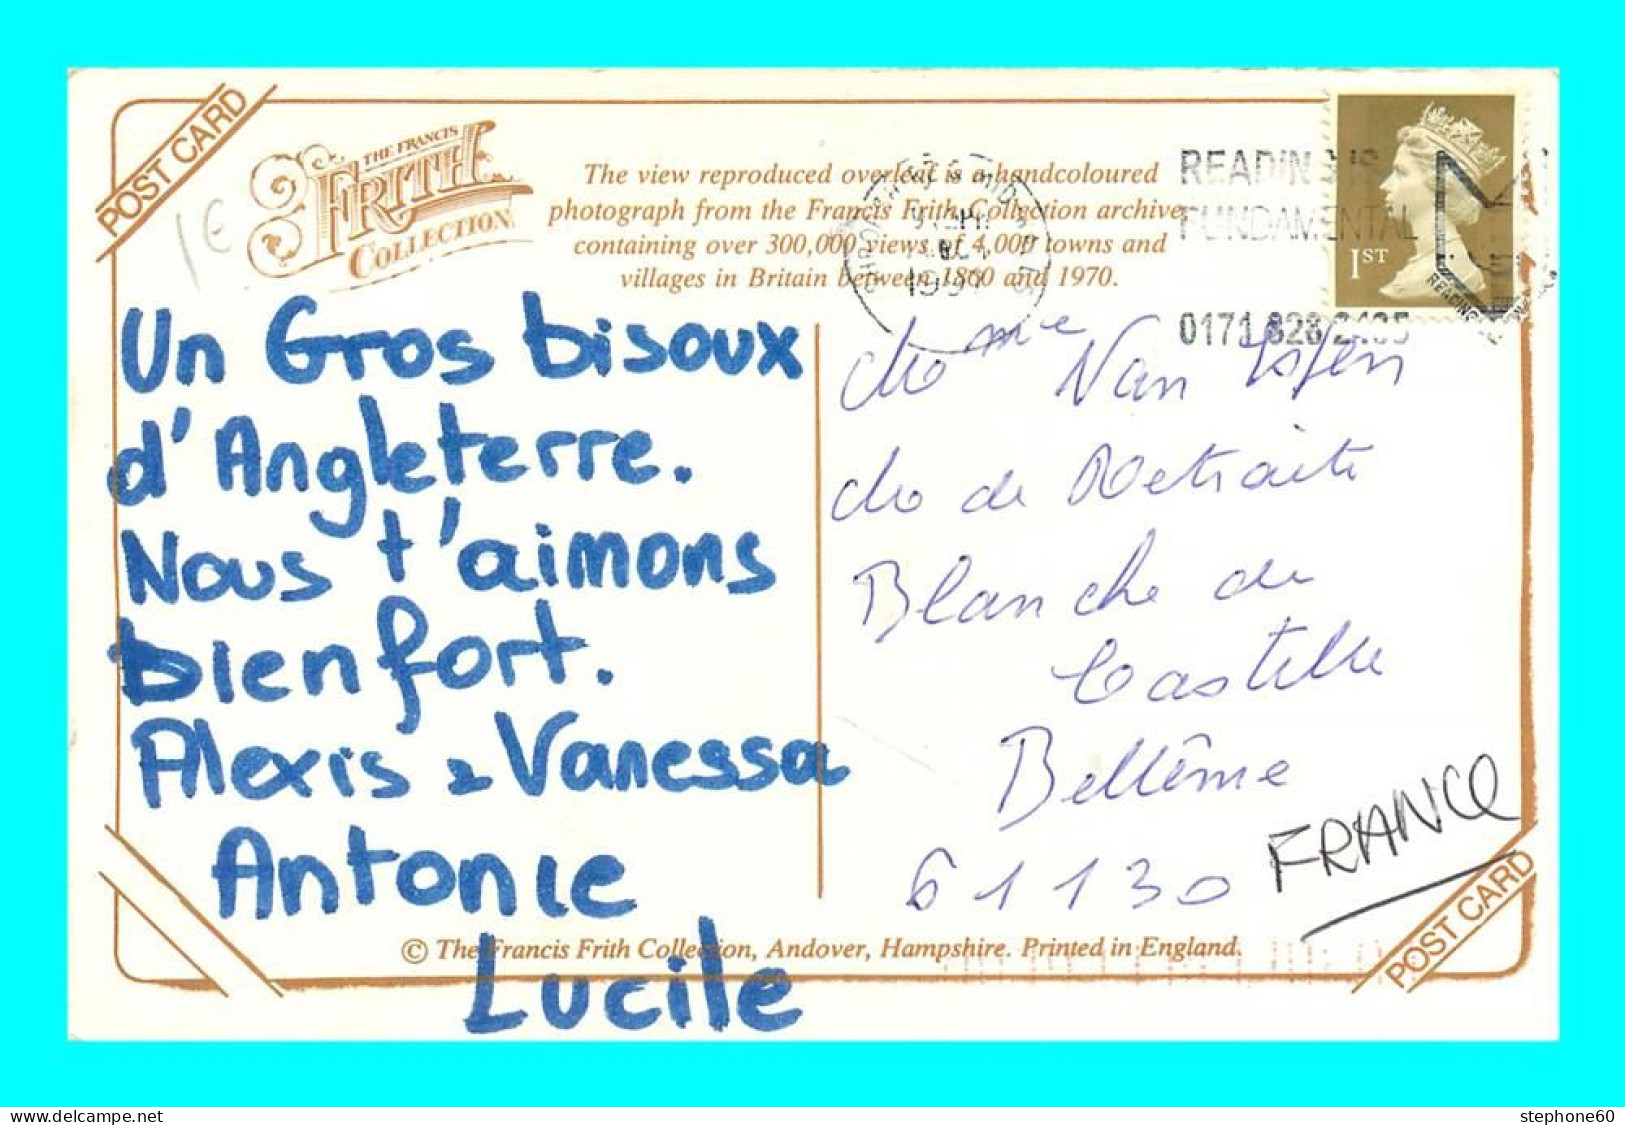 POST CARD
THE FRANCIS
FRITH
COLLECTION
1€
The view reproduced overleaf is a handcoloured
photograph from the Francis Frith Collection archive
containing over 300,000 views of 4,000 towns and
villages in Britain between 1860 and 1970.
READING IS
FUNDAMENTAL
0171 828 2435
1ST
Un Gros bisoux
d'Angleterre.
Nous t'aimons
bien fort.
Alexis & Vanessa
Antonie
Lucile
Mme Van
de Retraite
Blanche de
Castille
Bellême
61130
FRANCE
© The Francis Frith Collection, Andover, Hampshire. Printed in England.
POST CARD
stephone60